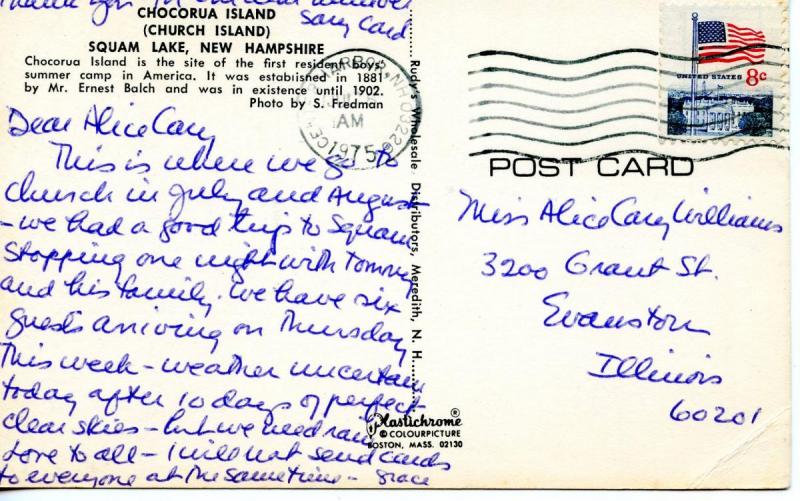 Thank you for
CHOCORUA ISLAND
(CHURCH ISLAND)
SQUAM LAKE, NEW HAMPSHIRE
Chocorua Island is the site of the first resident boys'
summer camp in America. It was established in 1881
by Mr. Ernest Balch and was in existence until 1902.
Photo by S. Fredman
Dear Alice Cary
This is where we go to
church in July and August
- we had a good trip to Squam
Stopping one night with Tommy
and his family. We have six
guests arriving on Thursday
This week - weather uncertain
today after 10 days of perfect
clear skies - but we need rain
Love to all - I will not send cards
to everyone at the same time - Grace
Rudy's Wholesale Distributors, Meredith, N. H.
Plastichrome®
© COLOURPICTURE
BOSTON, MASS. 02130
NH 03226
AM
1975
UNITED STATES 8c
POST CARD
Miss Alice Cary Williams
3200 Grant St.
Evanston
Illinois
60201